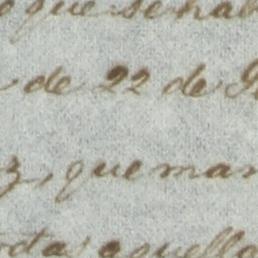 que se hal
de 22 de
z, que man
todas aquella